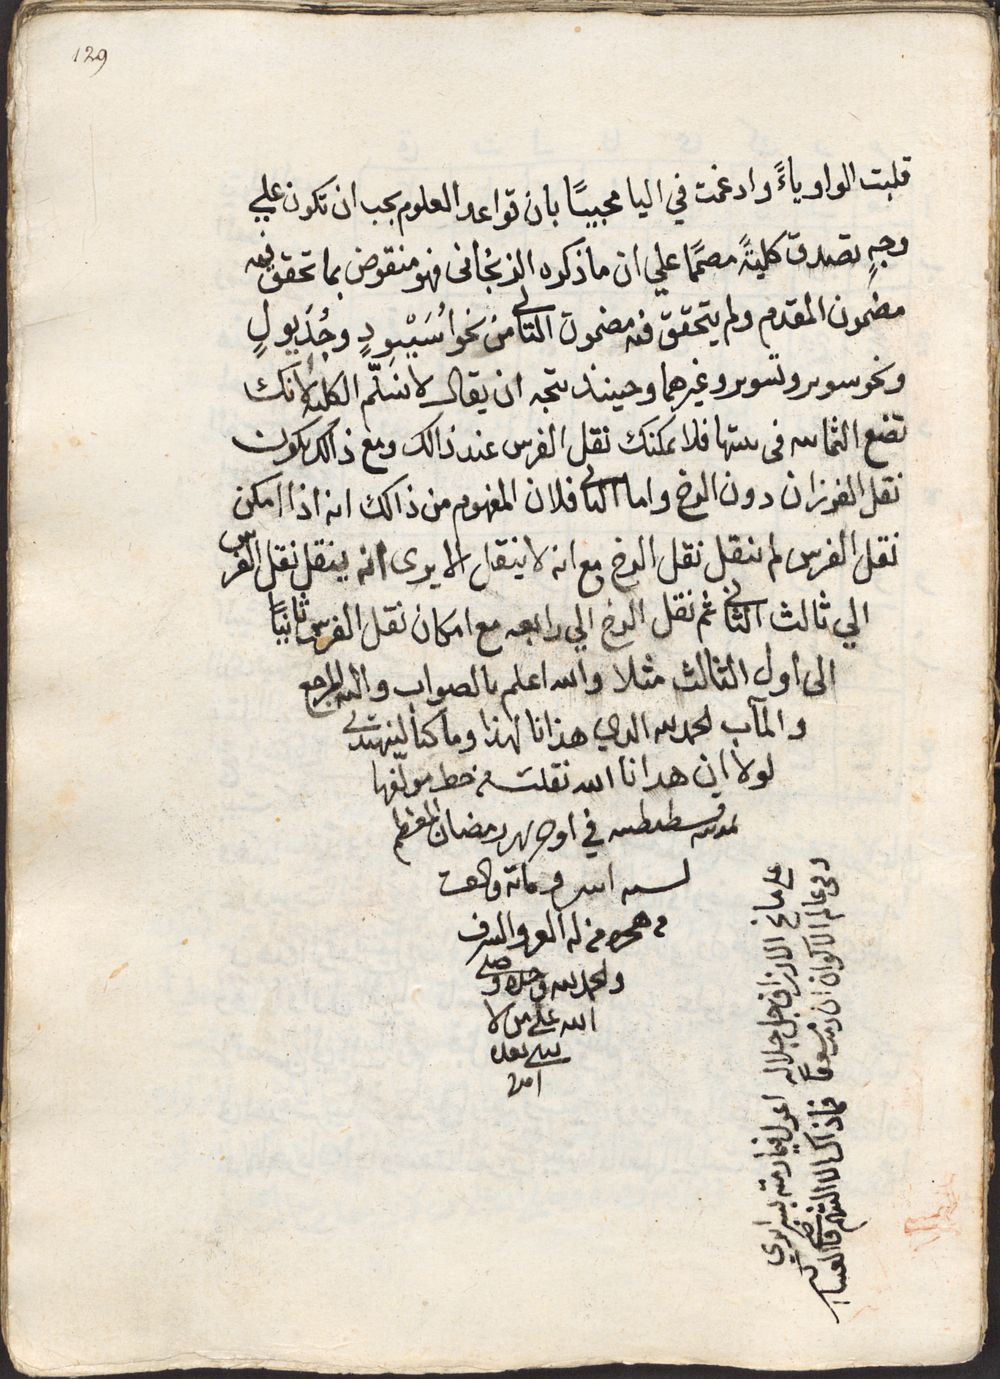 129
قلبت الواو ياءً وادغمت في اليا مجيبًا بان قواعد العلوم يجب ان تكون علي
وجهٍ تصدق كليةً مصمّما علي ان ما ذكره الزنجانى فهو منقوض بما تحقق فيه
مضمون المقدم ولم يتحقق فيه مضمون التالي من نحو أُسَيْوِدٍ وجُدَيولٍ
ونحو سوير وتسوير وغيرهما وحينئذ يتجه ان يقال لا نسلّم الكلية لانك
تضع الثمانيه فى بيتها فلا يمكنك نقل الفرس عند ذالك ومع ذالك يكون
نقل الفرزان دون الرخ واما الثاني فلان المفهوم من ذالك انه اذا امكن
نقل الفرس لم ينقل نقل الرخ مع انه لا ينقل الا يرى انه ينقل نقل الفرس
الي ثالث الثاني ثم نقل الرخ الي رابعه مع امكان نقل الفرس ثانيًا
الى أول الثالث مثلا والله اعلم بالصواب واليه المرجع
والمآب الحمد لله الذي هدانا لهذا وما كنا لنهتدي
لولا ان هدانا الله نقلت من خط مولّفها
في اواخر شهر رمضان المعظم
لسنه
من هجرة من له العز والشرف
والحمد لله وحده وصلي
الله علي من لا
نبي بعده
امين
علي مانح الارزاق جل جلاله اعول فيما رمته
وفي عالم الاكوان ان رمت مسعفًا فما ذاك الا